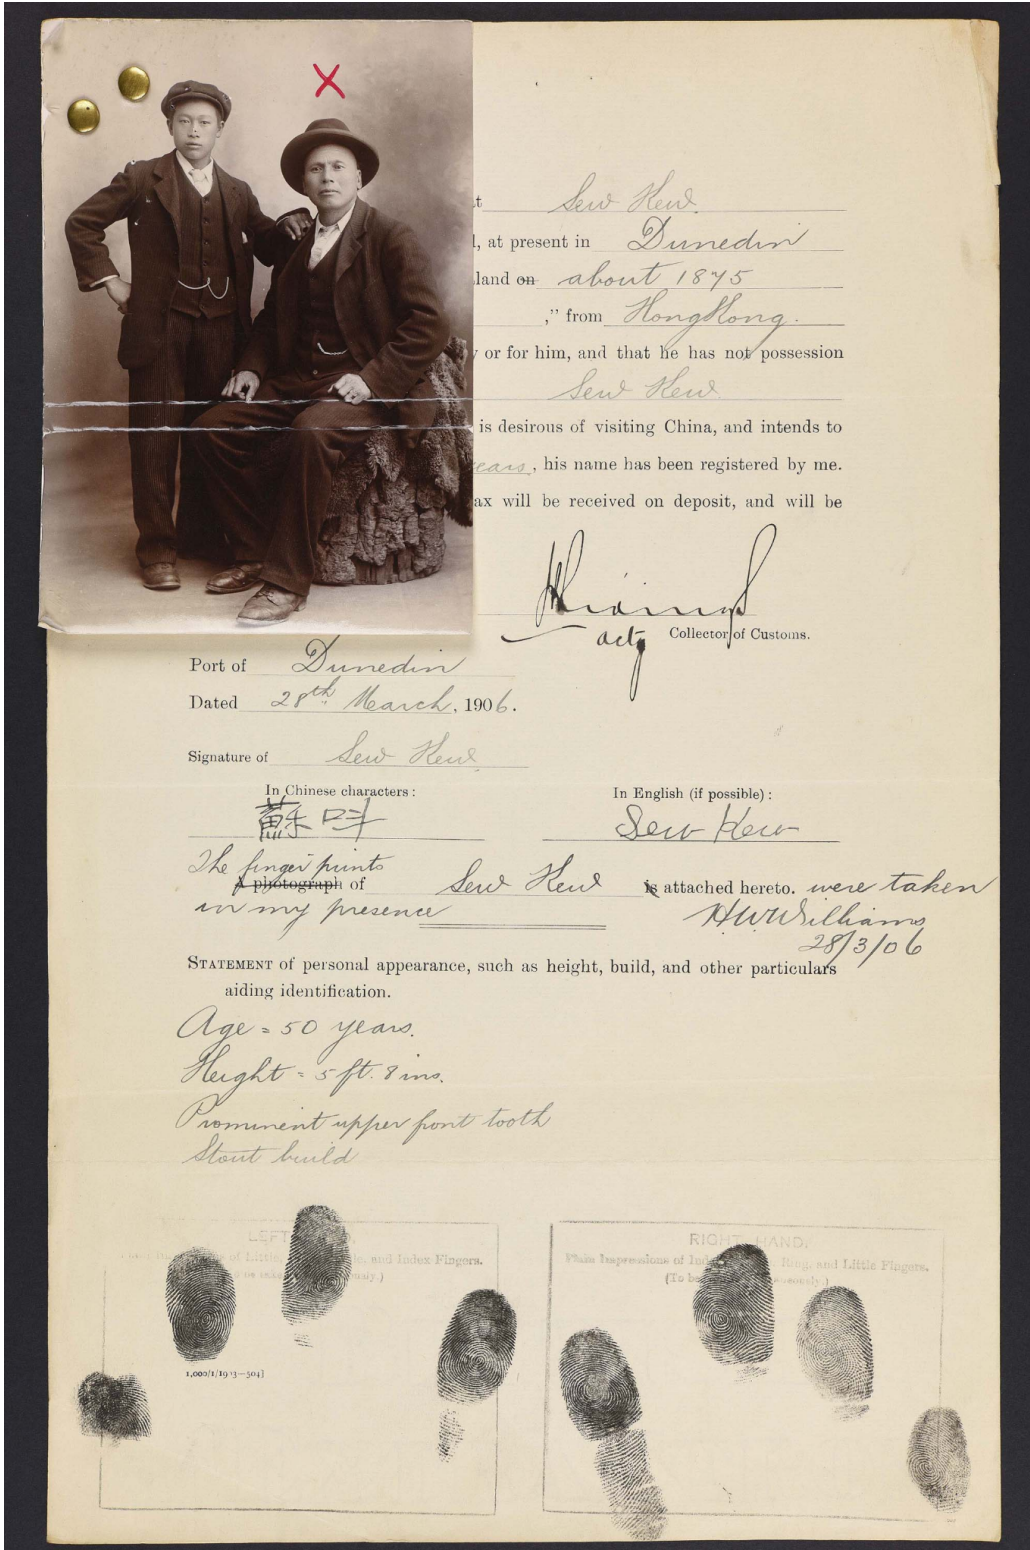 t Sew Kew.
l, at present in Dunedin
land on about 1875
," from HongKong.
y or for him, and that he has not possession
Sew Kew
is desirous of visiting China, and intends to
years, his name has been registered by me.
ax will be received on deposit, and will be
actg Collector of Customs.
Port of Dunedin
Dated 28th March, 1906.
Signature of Sew Kew
In Chinese characters: In English (if possible):
蘇 Sew Kew
The finger prints
A photograph of Sew Kew is attached hereto. were taken
in my presence HWWilliams
28/3/06
STATEMENT of personal appearance, such as height, build, and other particulars
aiding identification.
Age = 50 years.
Height = 5 ft. 8 ins.
Prominent upper front tooth
Stout build
LEFT RIGHT HAND.
of Little, and Index Fingers. Plain Impressions of Index Ring, and Little Fingers.
(To be
1,000/1/1903—504]